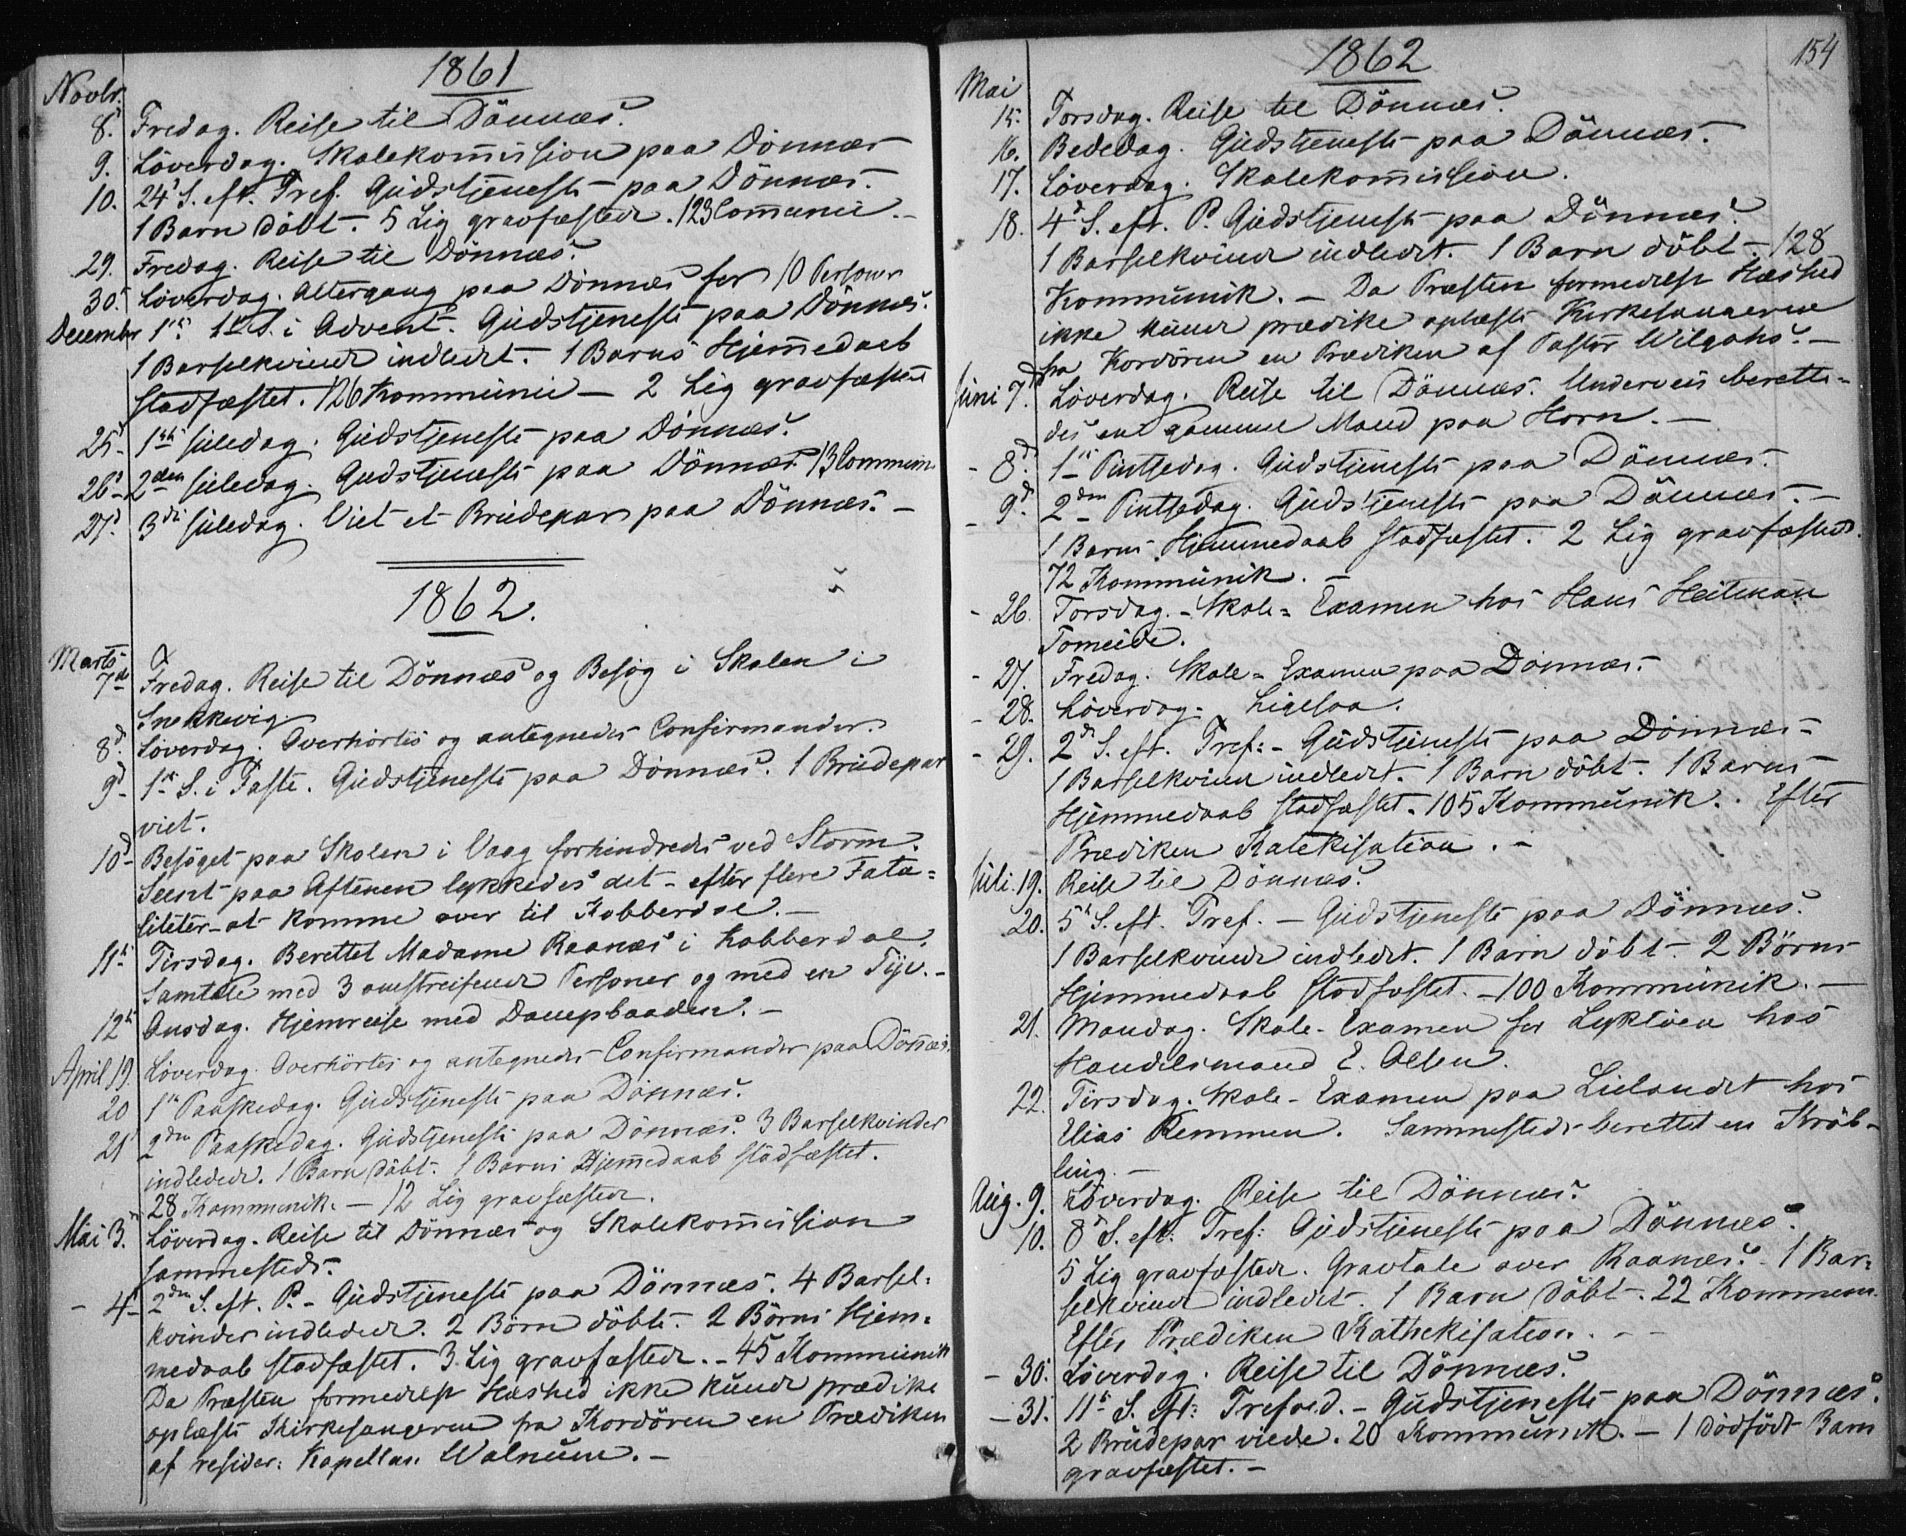 1861
Novbr.
8. Fredag. Reise til Dönnæs.
9. Löverdag. Skolekomission paa Dönnæs
10. 24' S. eft. Tref. Gudstjeneste paa Dönnæs.
1 Barn döbt. 5 Lig gravfæstede. 123 Communic.
29. Fredag. Reise til Dönnæs.
30. Löverdag. Altergang paa Dönnæs for 10 Personer
December 1ste 1ste S. i Advent. Gudstjeneste paa Dönnæs.
1 Barselkvinde indledet. 1 Barns Hjemedaab
stadfæstet. 126 Kommunic — 2 Lig gravfæstede
25 1ste Juledag. Gudstjeneste paa Dönnæs.
26 2den Juledag. Gudstjeneste paa Dönnæs. 13 Commun.
27. 3die Juledag. Viet et Brudepar paa Dönnæs. —
1862.
Marts
7de Fredag. Reise til Dönnæs og Besøg i Skolen i
Snekkevig
8d Löverdag. Overhörtes og antegnedes Confirmander.
9d 1ste S. i Faste. Gudstjeneste paa Dönnæs. 1 Brudepar
viet.
10d Besøget paa Skolen i Vaag forhindredes ved Storm.
Seent paa Aftenen lykkedes det - efter flere Fata=
liteter - at komme over til Kobberdal. —
11te Tirsdag. Berettet Madame Raanæs i Kobberdal.
Samtale med 3 omstreifende Personer og med en Tyv. -
12te Onsdag. Hjemreise med Dampbaaden. —
April 19. Löverdag. Overhörtes og antegnedes Confirmander paa Dönæs.
20 1ste Paaskedag. Gudstjeneste paa Dönnæs.
21 2den Paaskedag. Gudstjeneste paa Dönnæs. 3 Barselkvinder
indledede. 1 Barn döbt. 1 Barns Hjemedaab stadfæstet.
28 Kommunik. — 12 Lig gravfæstede.
Mai 3. Löverdag. Reise til Dönnæs og Skolekomission
sammesteds.
- 4 2den S. eft. P. - Gudstjeneste paa Dönnæs. 4 Barsel=
kvinder indledede. 2 Börn döbte. 2 Börns Hjem=
medaab stadfæstet. 3 Lig gravfæstede. - 45 Kommunik
Da Præsten formedelst Hæshed ikke kunde prædike
oplæste Kirkesangeren fra Kordören en Prædiken
af resider: Kapellan Walnum. —
154
1862
Mai
15. Torsdag. Reise til Dönnæs.
16. Bededag. Gudstjeneste paa Dönnæs.
17. Löverdag. Skolekomission.
18. 4d S. eft. P. Gudstjeneste paa Dönnæs.
1 Barselkvinde indledet. 1 Barn döbt — 128
Kommunik. — Da Præsten formedelst Hæshed
ikke kunde prædike oplæste Kirkesangeren
fra Kordören en Prædiken af Pastor Wilgohs. —
Juni 7. Löverdag. Reise til Dönnæs. Underveis berette=
des en gammel Mand paa Horn. —
- 8d 1ste Pintsedag. Gudstjeneste paa Dönnæs.
- 9d 2den Pintsedag. Gudstjeneste paa Dönnæs. —
1 Barns Hjemmedaab stadfæstet. 2 Lig gravfæstede.
72 Kommunik. —
- 26. Torsdag. - Skole= Examen hos Hans Heitman
Tomeide.
- 27. Fredag. Skole= Examen paa Dönnæs.
- 28. Löverdag. Ligesaa.
- 29. 2d S. eft. Tref. - Gudstjeneste paa Dönnæs -
1 Barselkvinde indledet. 1 Barn döbt. 1 Barns
Hjemmedaab stadfæstet. 105 Kommunik. . Efter
Prædiken Katekisation. —
Juli. 19. Reise til Dönnæs.
20. 5te S. eft. Tref. — Gudstjeneste paa Dönnæs.
1 Barselkvinde indledet. 1 Barn döbt. 2 Börns
Hjemmedaab stadfæstet. - 100 Kommunik. —
21. Mandag. Skole-Examen for Lyktöen hos
Handelsmand E. Olsen.
22. Tirsdag. Skole-Examen paa Lielandet hos
Elias Remmen. Sammesteds berettet en Kröb-
ling. —
Aug. 9. Löverdag. Reise til Dönnæs.
10. 8d S. eft. Tref: Gudstjeneste paa Dönnæs.
5 Lig gravfæstede. Gravtale over Raanæs. 1 Bar=
selkvinde indledet. 1 Barn döbt. 22 Kommun.
Efter Prædiken Kathekisation. —
- 30. Löverdag. Reise til Dönnæs.
- 31. 11te S. eft: Trefold. - Gudstjeneste paa Dönnæs.
2 Brudepar viede. 20 Kommunik. — 1 dödfödt Barn
gravfæstet. —